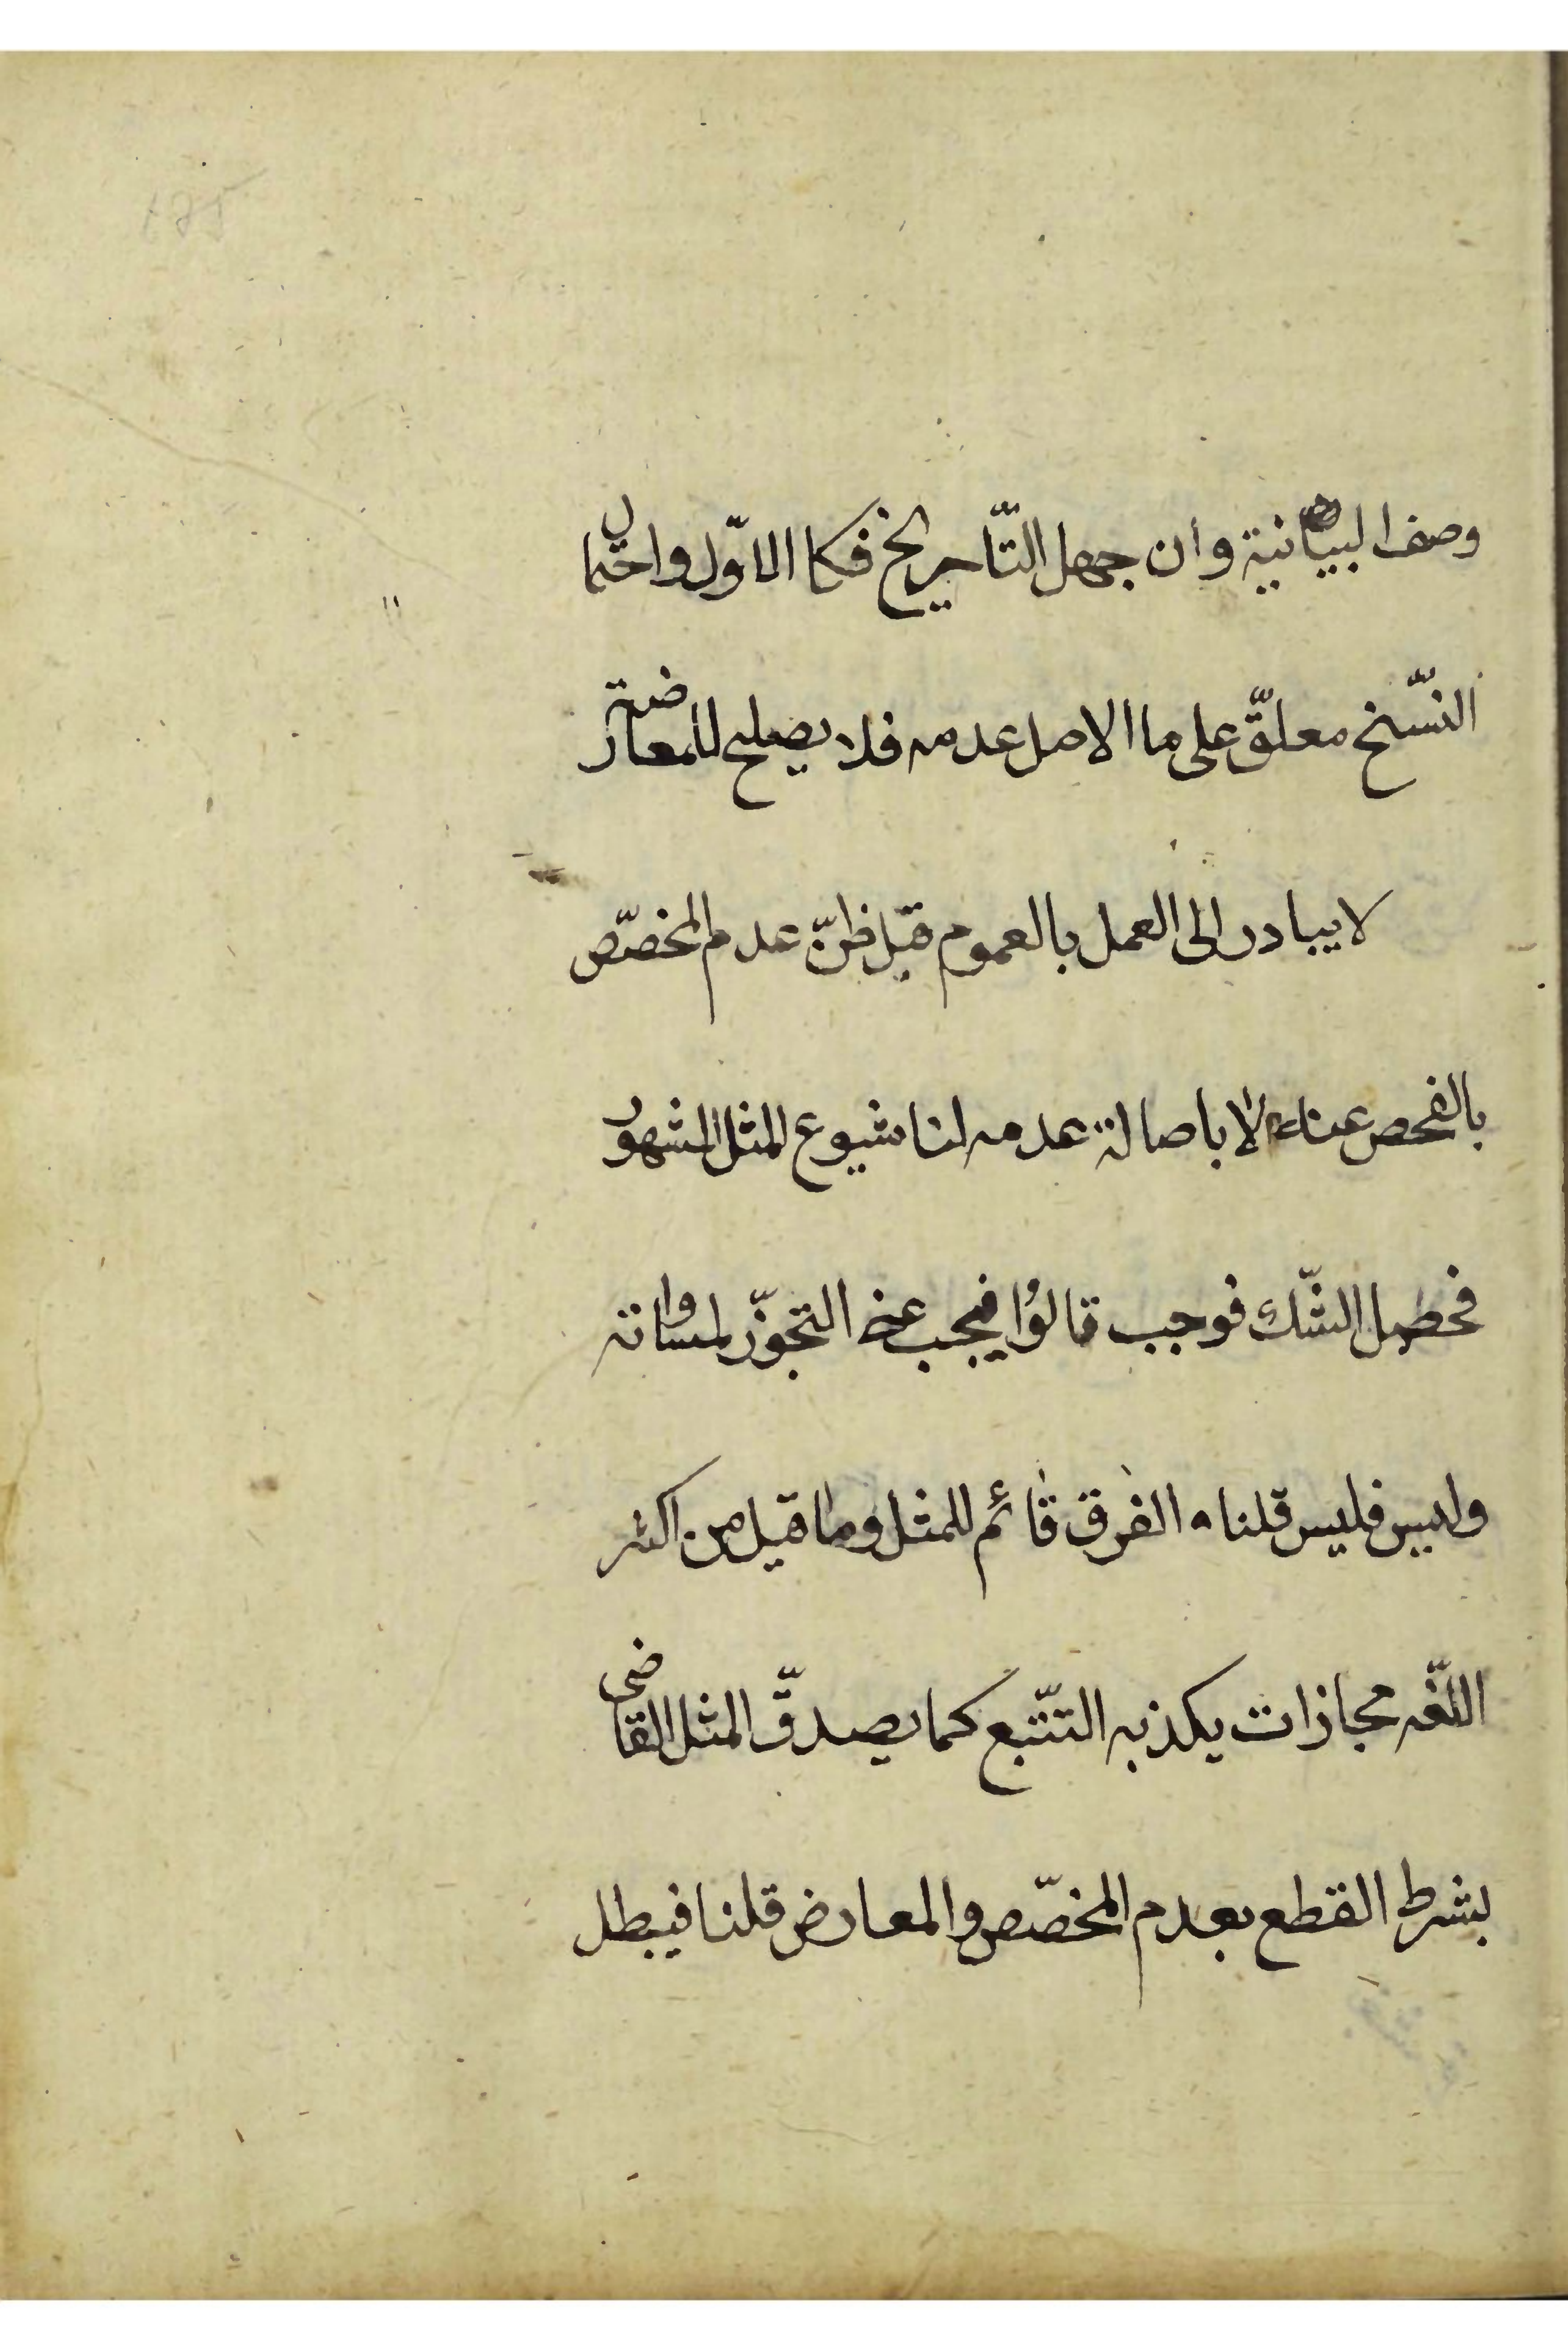 وصف البيانية وان جهل التّاريخ فكا الاوّل واحتمال
النسّخ معلقّ على ما الاصل عدمه فلا يصلح للمعارضة
لا يبادر الى العمل بالعموم قبل ظنّ عدم المخصّص
بالفحص عنه لا باصالة عدمه لنا شيوع المثل المشهور
فحصل الشّك فوجب قالوُا فيجب عن التجوّز لمساواته
وليس فليس قلنا الفرق قائم للمثل وما قيل من اكثر
اللّغه مجازات يكذبه التتّبع كما يصدقّ المثل القاضى
بشرط القطع بعدم المخصّص والمعارض قلنا فيبطل